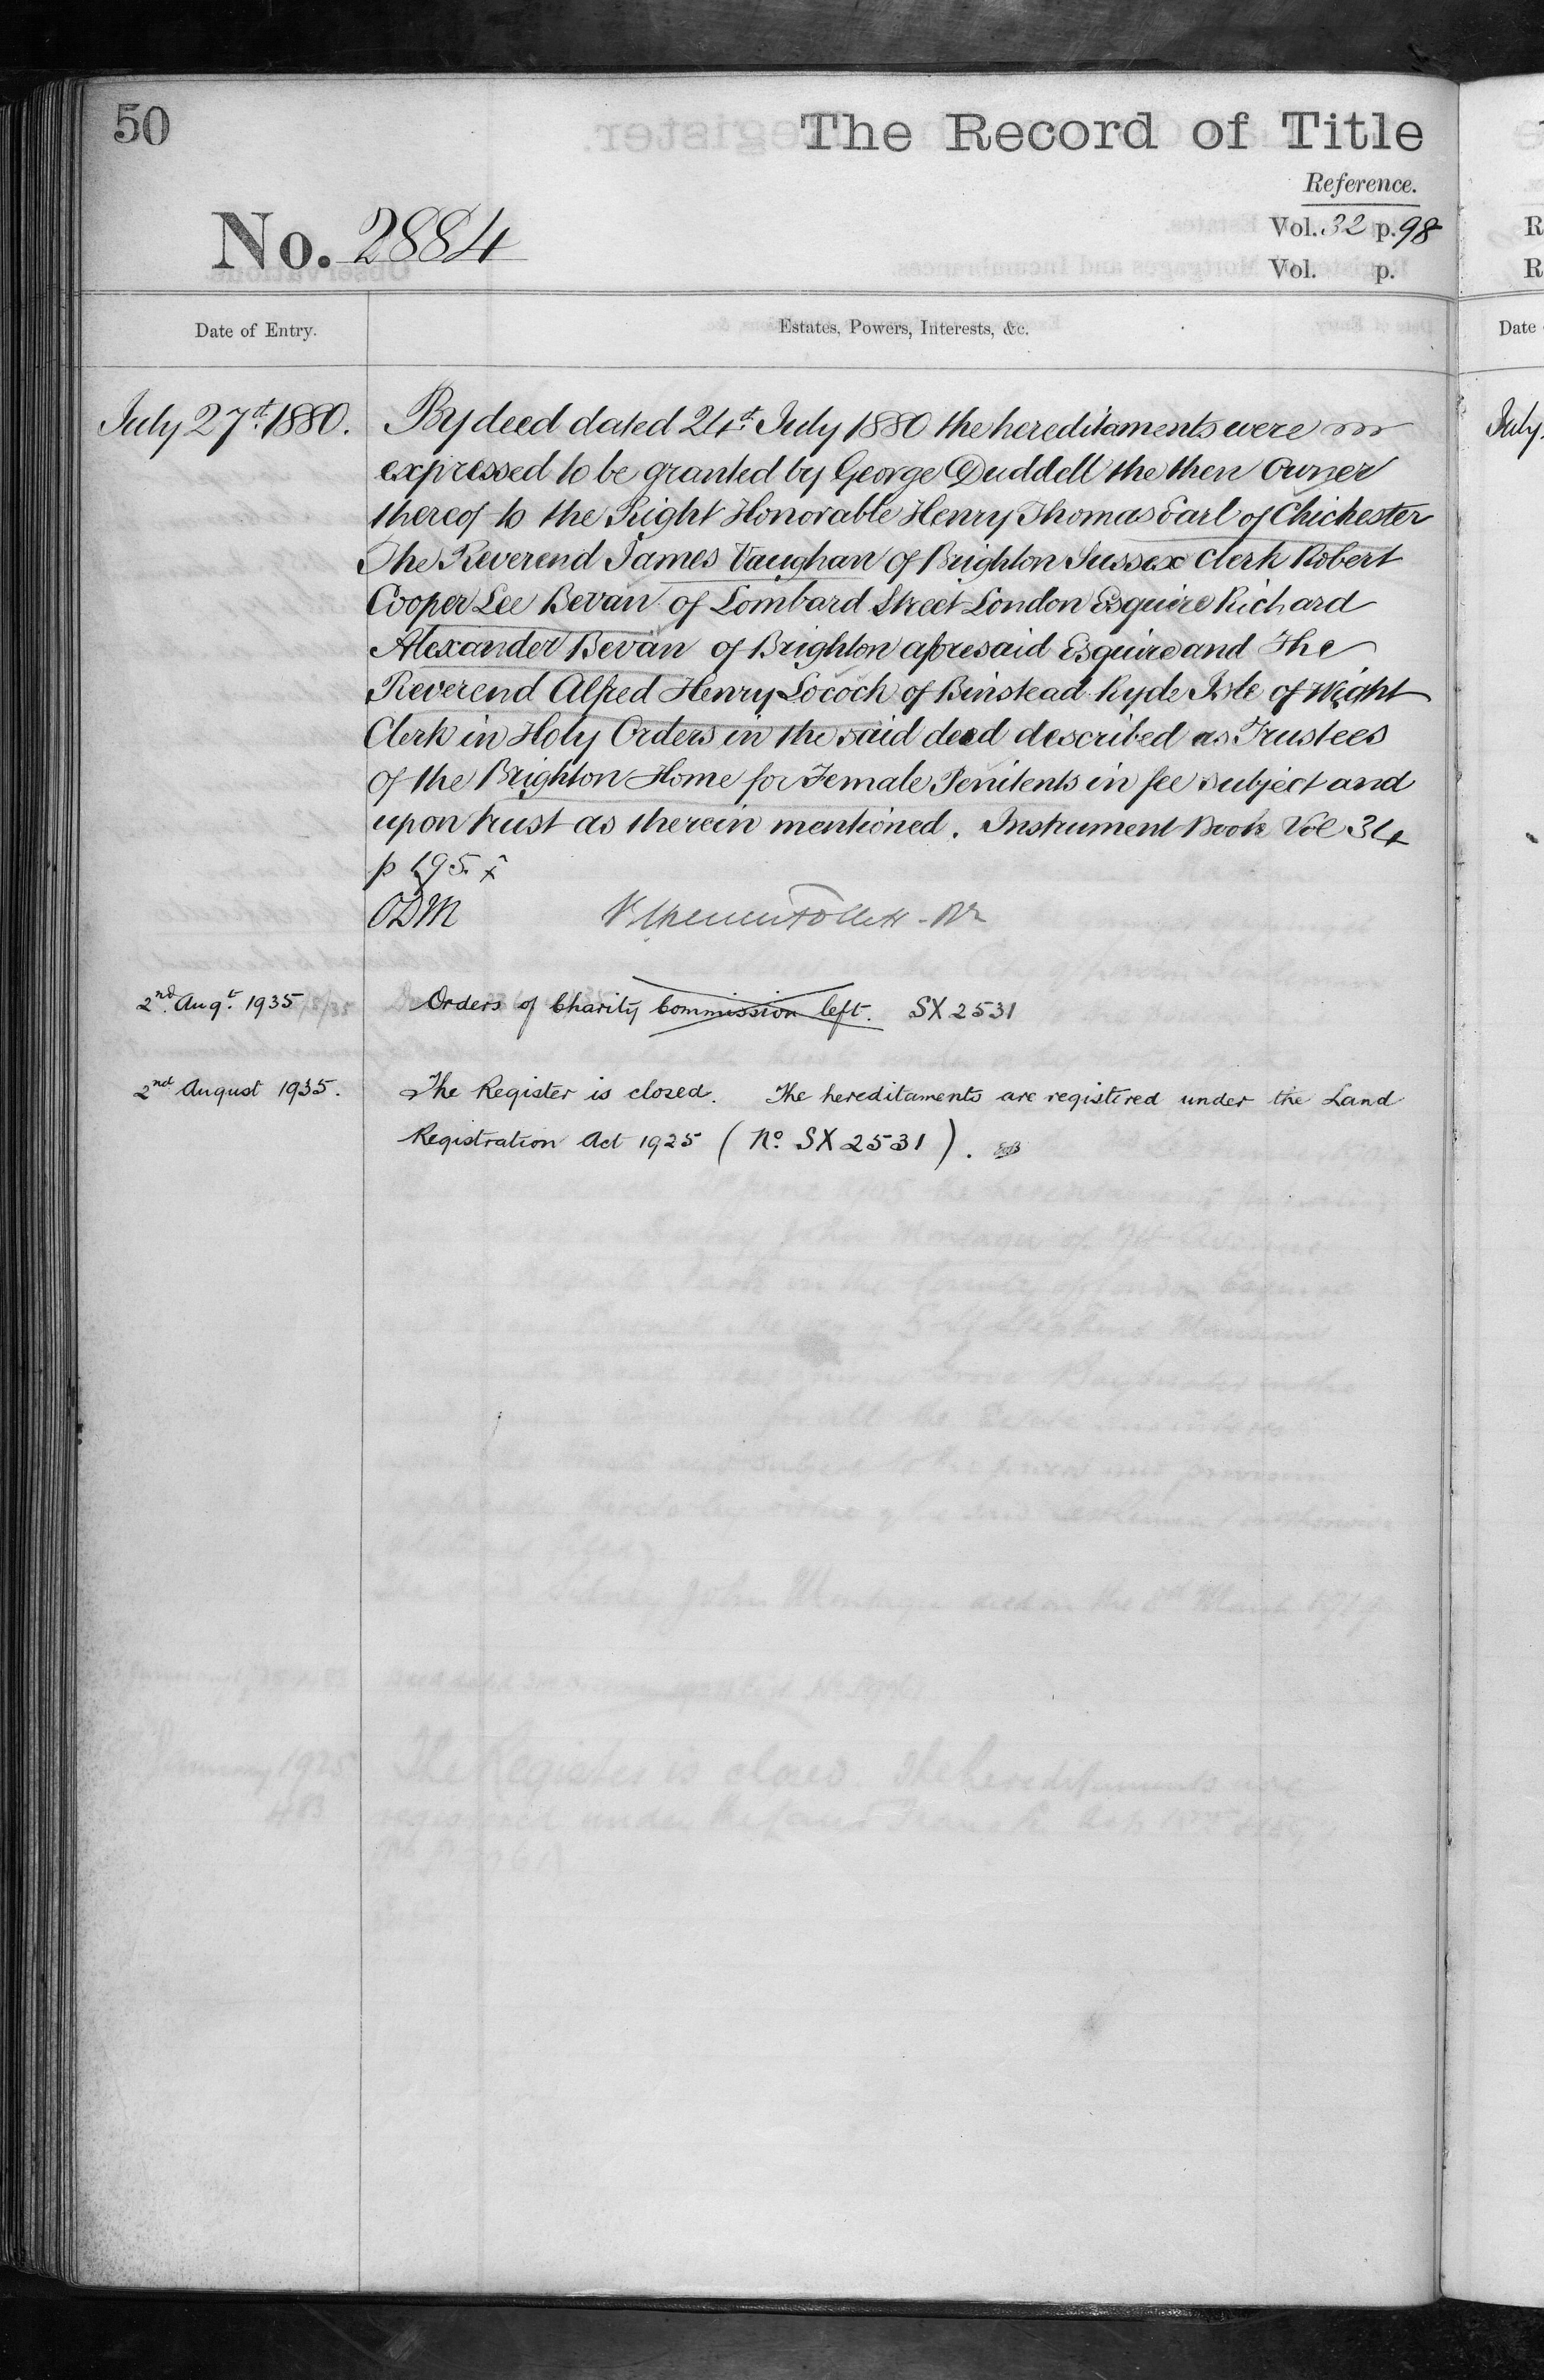 50
The Record of Title
Reference.
No. 2884
Vol. 32 p. 98
Vol. p.
Date of Entry.
Estates, Powers, Interests, &c.
July 27th. 1880.
By deed dated 24th July 1880 the hereditaments were
expressed to be granted by George Duddell the then owner
thereof to the Right Honorable Henry Thomas Earl of Chichester
The Reverend James Vaughan of Brighton Sussex Clerk Robert
Cooper Lee Bevan of Lombard Street London Esquire Richard
Alexander Bevan of Brighton aforesaid Esquire and The
Reverend Alfred Henry Locock of Binstead Ryde Isle of Wight
Clerk in Holy Orders in the said deed described as Trustees
of the Brighton Home for Female Penitents in fee subject and
upon trust as therein mentioned. Instrument Book Vol 34
p 195.
ODM
2nd. Augt. 1935
Orders of Charity Commission left. SX 2531
2nd August 1935.
The Register is closed. The hereditaments are registered under the Land
Registration Act 1925 (No. SX 2531).
R
R
Date
July